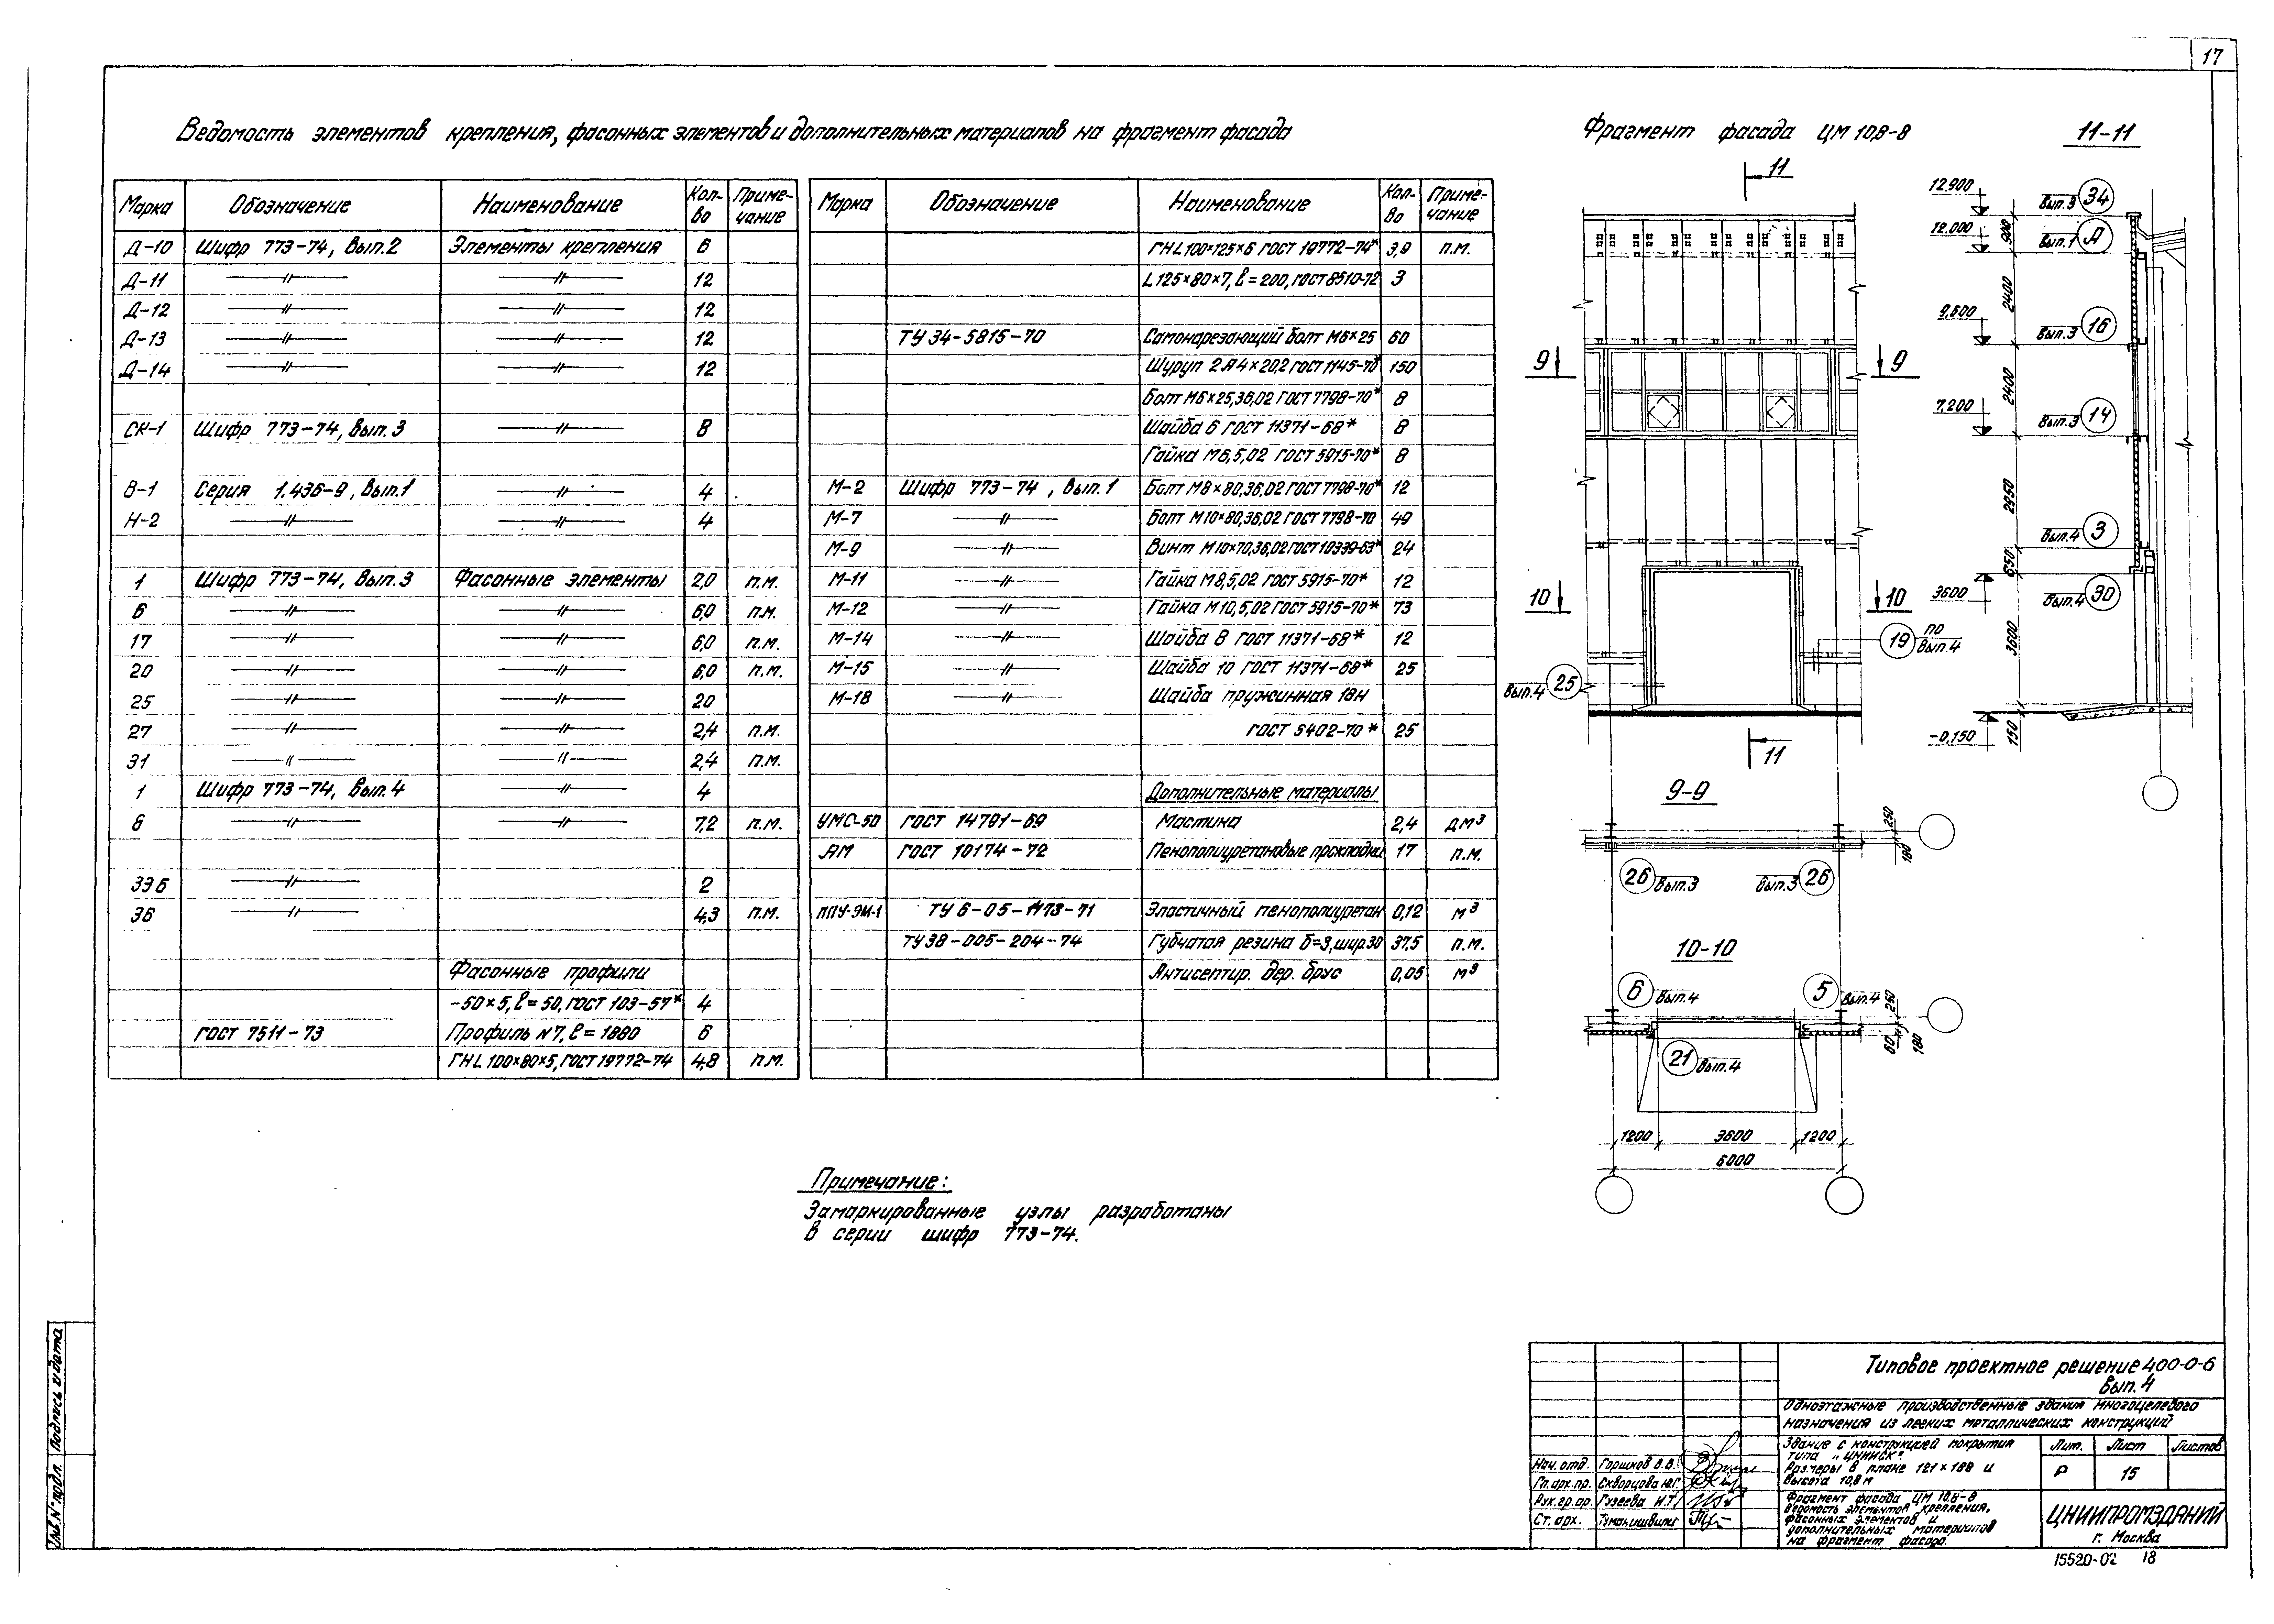 17
Ведомость элементов крепления, фасонных элементов и дополнительных материалов на фрагмент фасада
Марка Обозначение Наименование Кол-во Приме-чание
Д-10 Шифр 773-74, Вып.2 Элементы крепления 6
Д-11 —〃— —〃— 12
Д-12 —〃— —〃— 12
Д-13 —〃— —〃— 12
Д-14 —〃— —〃— 12
СК-1 Шифр 773-74, Вып.3 —〃— 8
В-1 Серия 1.436-9, Вып.1 —〃— 4
Н-2 —〃— —〃— 4
1 Шифр 773-74, Вып.3 Фасонные элементы 2,0 п.м.
6 —〃— —〃— 6,0 п.м.
17 —〃— —〃— 6,0 п.м.
20 —〃— —〃— 6,0 п.м.
25 —〃— —〃— 20
27 —〃— —〃— 2,4 п.м.
31 —〃— —〃— 2,4 п.м.
1 Шифр 773-74, Вып.4 —〃— 4
6 —〃— —〃— 7,2 п.м.
ЗЭ6 —〃— 2
36 —〃— 4,3 п.м.
Фасонные профили
-50×5, ℓ=50, ГОСТ 103-57* 4
ГОСТ 7511-73 Профиль N7, ℓ=1880 6
ГН∟100×80×5, ГОСТ 19772-74 4,8 п.м.
Марка Обозначение Наименование Кол-во Приме-чание
ГН∟100×125×6 ГОСТ 19772-74* 3,9 п.м.
∟125×80×7, ℓ=200, ГОСТ 8510-72 3
ТУ 34-5815-70 Самонарезающий болт М6×25 60
Шуруп 2А4×20,2 ГОСТ 1145-70* 150
Болт М6×25,36,02 ГОСТ 7798-70* 8
Шайба 6 ГОСТ 11371-68* 8
Гайка М6,5,02 ГОСТ 5915-70* 8
М-2 Шифр 773-74, Вып.1 Болт М8×80,36,02 ГОСТ 7798-70* 12
М-7 —〃— Болт М10×80,36,02 ГОСТ 7798-70 49
М-9 —〃— Винт М10×70,36,02 ГОСТ 10339-63* 24
М-11 —〃— Гайка М8,5,02 ГОСТ 5915-70* 12
М-12 —〃— Гайка М10,5,02 ГОСТ 5915-70* 73
М-14 —〃— Шайба 8 ГОСТ 11371-68* 12
М-15 —〃— Шайба 10 ГОСТ 11371-68* 25
М-18 —〃— Шайба пружинная 18Н
ГОСТ 6402-70* 25
Дополнительные материалы
УМС-50 ГОСТ 14791-69 Мастика 2,4 дм³
АМ ГОСТ 10174-72 Пенополиуретановые прокладки 17 п.м.
ППУ-ЭИ-1 ТУ 6-05-1473-71 Эластичный пенополиуретан 0,12 м³
ТУ38-005-204-74 Губчатая резина δ=3, шир.30 37,5 п.м.
Антисептир. дер. брус 0,05 м³
Примечание:
Замаркированные узлы разработаны
в серии шифр 773-74.
Фрагмент фасада ЦМ 10,8-8
11
9 9
10 10
19 по Вып.4
Вып.4 25
11
11-11
12,900
12.000
9,600
7,200
3600
-0,150
900
2400
2400
2950
650
3600
150
Вып.3 34
Вып.1 А
Вып.3 16
Вып.3 14
Вып.4 3
Вып.4 30
9-9
250
180
26 Вып.3 Вып.3 26
10-10
6 Вып.4 5 Вып.4
250
60
180
21 Вып.4
1200 3600 1200
6000
Типовое проектное решение 400-0-6
Вып. 4
Одноэтажные производственные здания многоцелевого
назначения из легких металлических конструкций
Здание с конструкцией покрытия
типа „ЦНИИСК".
Размеры в плане 121×188 и
высота 10,8 м
Лит. Лист Листов
Р 15
Фрагмент фасада ЦМ 10,8-8
Ведомость элементов крепления,
фасонных элементов и
дополнительных материалов
на фрагмент фасада.
ЦНИИПРОМЗДАНИЙ
г. Москва
Нач. отд. Горшков В.В.
Гл. арх. пр. Скворцова Ю.Г.
Рук. гр. ар. Гузеева И.Т.
Ст. арх.
15520-02 18
Подпись и дата
Инв. № подл.